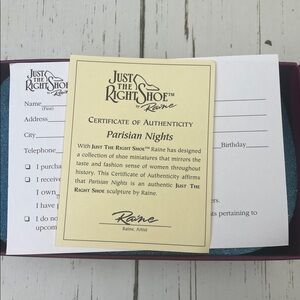 JUST
THE
RIGHT SHOE™
BY Raine
CERTIFICATE OF AUTHENTICITY
Parisian Nights
With JUST THE RIGHT SHOE™ Raine has designed
a collection of shoe miniatures that mirrors the
taste and fashion sense of women throughout
history. This Certificate of Authenticity affirms
that Parisian Nights is an authentic JUST THE
RIGHT SHOE sculpture by Raine.
Raine
Raine, Artist
JUST
THE
RIGHT SHOE
BY Raine
Name
(First)
Address
City
Telephone
Birthday
I purcha
I receiv
I own
I have
I do no
upcom
ts pertaining to